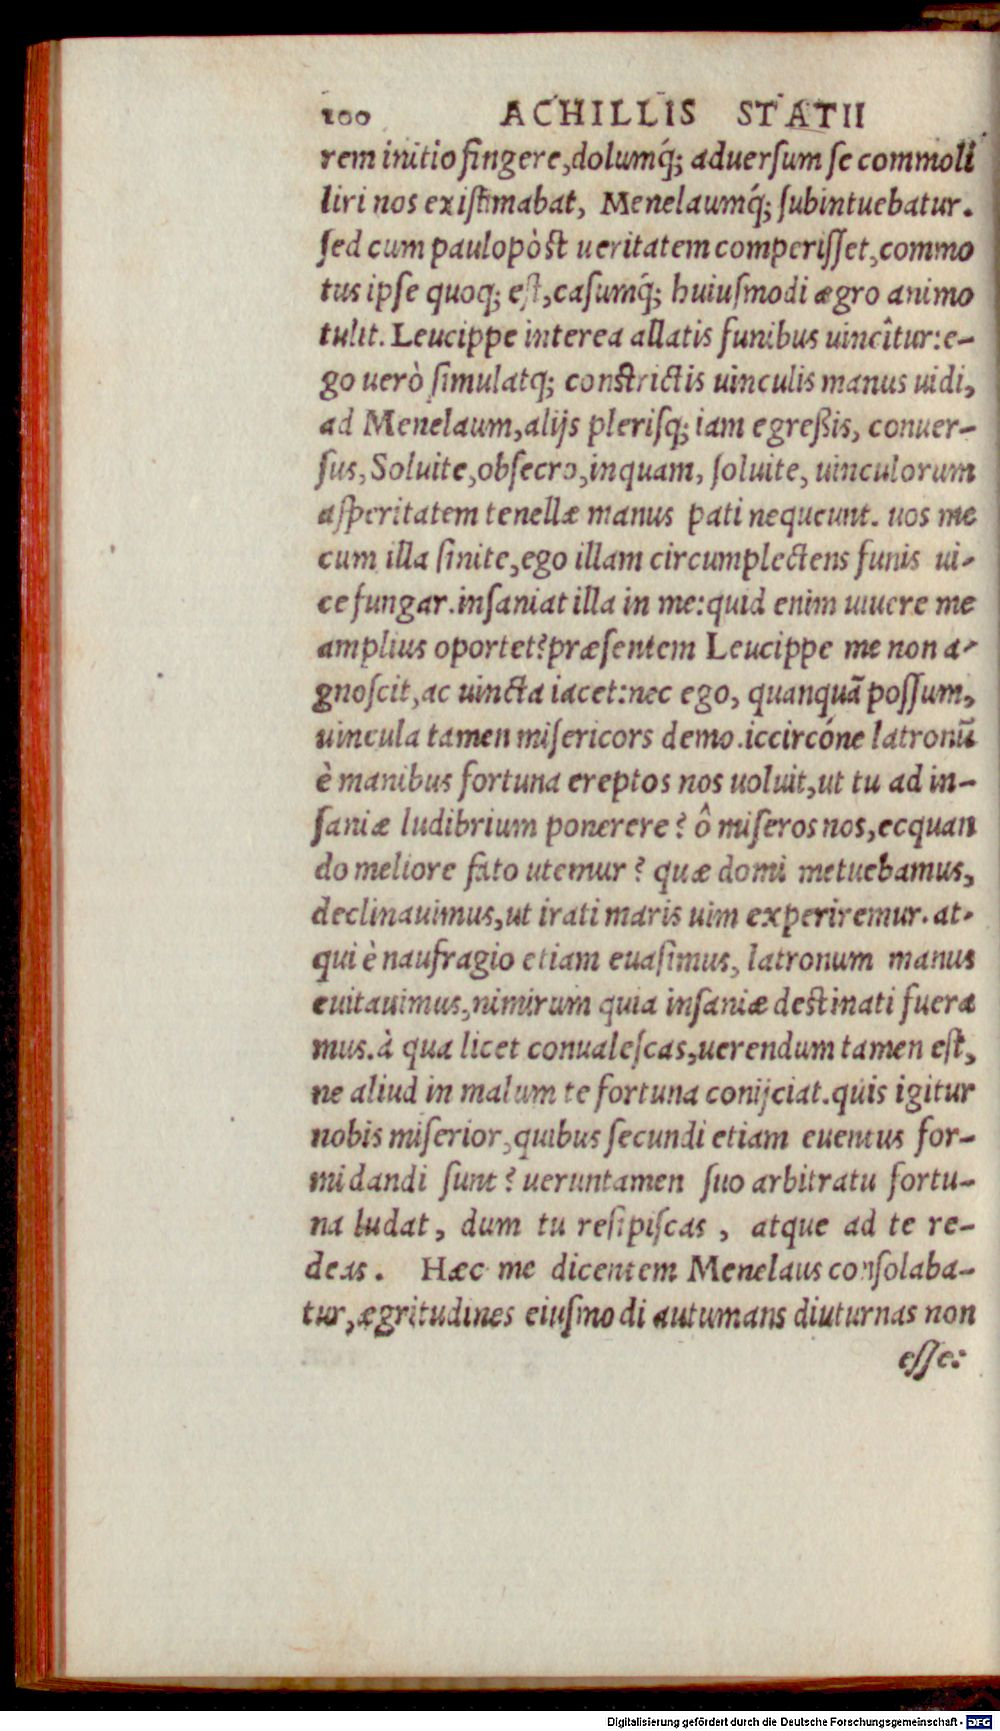 100 ACHILLIS STATII
rem initio fingere, dolumq́; aduersum se commoli
liri nos existimabat, Menelaumq́; subintuebatur.
sed cum paulopòst ueritatem comperisset, commo
tus ipse quoq; est, casumq́; huiusmodi ægro animo
tulit. Leucippe interea allatis funibus uincîtur: e-
go uerò simulatq; constrictis uinculis manus uidi,
ad Menelaum, alijs plerisq; iam egreßis, conuer-
sus, Soluite, obsecro, inquam, soluite, uinculorum
asperitatem tenellæ manus pati nequeunt. uos me
cum illa sinite, ego illam circumplectens funis ui-
ce fungar. insaniat illa in me: quid enim uiuere me
amplius oportet? præsentem Leucippe me non a-
gnoscit, ac uincta iacet: nec ego, quanquã possum,
uincula tamen misericors demo. iccircóne latronũ
è manibus fortuna ereptos nos uoluit, ut tu ad in-
saniæ ludibrium ponerere? ô miseros nos, ecquan
do meliore fato utemur? quæ domi metuebamus,
declinauimus, ut irati maris uim experiremur. at-
qui è naufragio etiam euasimus, latronum manus
euitauimus, nimirum quia insaniæ destinati fuera
mus. à qua licet conualescas, uerendum tamen est,
ne aliud in malum te fortuna conijciat. quis igitur
nobis miserior, quibus secundi etiam euentus for-
midandi sunt? ueruntamen suo arbitratu fortu-
na ludat, dum tu resipiscas, atque ad te re-
deas. Hæc me dicentem Menelaus consolaba-
tur, ægritudines eiusmodi autumans diuturnas non
esse:
Digitalisierung gefördert durch die Deutsche Forschungsgemeinschaft - DFG